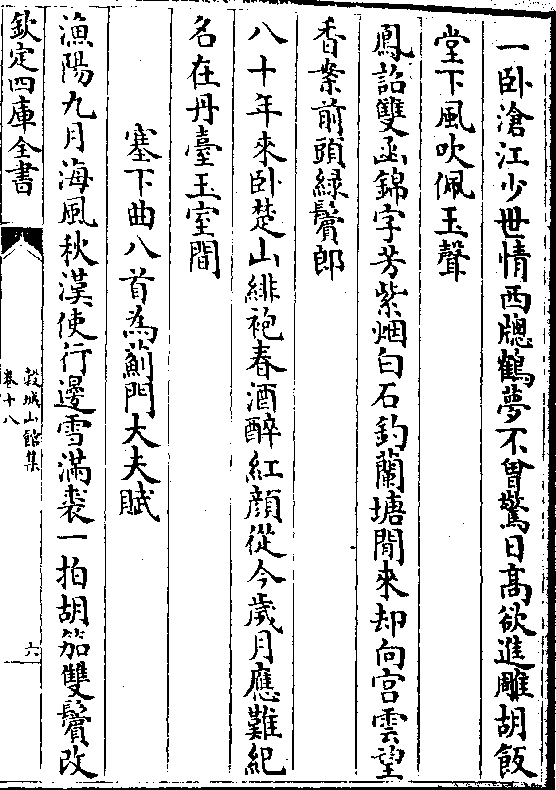 一卧滄江少世情西牕鶴夢不曾驚日髙欲進雕胡飯
堂下風吹佩玉聲
鳳詔雙函錦字芳紫烟白石釣蘭塘閒來却向宫雲望
香案前頭緑鬢郎
八十年來卧楚山緋袍春酒醉紅顔從今歲月應難紀
名在丹臺玉室間
塞下曲八首為薊門大夫賦
漁陽九月海風秋漢使行邊雪滿裘一拍胡笳雙鬢改
欽定四庫全書
榖城山館集
卷十八
六